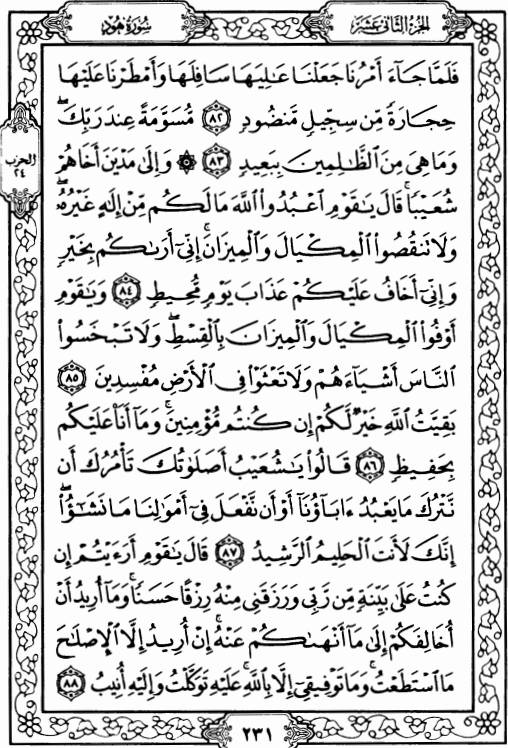 الجزء الثاني عشر
سورة هود
فَلَمَّا جَآءَ أَمْرُنَا جَعَلْنَا عَـٰلِيَهَا سَافِلَهَا وَأَمْطَرْنَا عَلَيْهَا
حِجَارَةً مِّن سِجِّيلٍ مَّنضُودٍ ٨٢ مُّسَوَّمَةً عِندَ رَبِّكَ ۖ
وَمَا هِىَ مِنَ ٱلظَّـٰلِمِينَ بِبَعِيدٍ ٨٣ ۞ وَإِلَىٰ مَدْيَنَ أَخَاهُمْ
الحزب
٢٤
شُعَيْبًا ۚ قَالَ يَـٰقَوْمِ ٱعْبُدُوا۟ ٱللَّهَ مَا لَكُم مِّنْ إِلَـٰهٍ غَيْرُهُۥ ۖ
وَلَا تَنقُصُوا۟ ٱلْمِكْيَالَ وَٱلْمِيزَانَ ۚ إِنِّىٓ أَرَىٰكُم بِخَيْرٍ
وَإِنِّىٓ أَخَافُ عَلَيْكُمْ عَذَابَ يَوْمٍ مُّحِيطٍ ٨٤ وَيَـٰقَوْمِ
أَوْفُوا۟ ٱلْمِكْيَالَ وَٱلْمِيزَانَ بِٱلْقِسْطِ ۖ وَلَا تَبْخَسُوا۟
ٱلنَّاسَ أَشْيَآءَهُمْ وَلَا تَعْثَوْا۟ فِى ٱلْأَرْضِ مُفْسِدِينَ ٨٥
بَقِيَّتُ ٱللَّهِ خَيْرٌ لَّكُمْ إِن كُنتُم مُّؤْمِنِينَ ۚ وَمَآ أَنَا۠ عَلَيْكُم
بِحَفِيظٍ ٨٦ قَالُوا۟ يَـٰشُعَيْبُ أَصَلَوٰتُكَ تَأْمُرُكَ أَن
نَّتْرُكَ مَا يَعْبُدُ ءَابَآؤُنَآ أَوْ أَن نَّفْعَلَ فِىٓ أَمْوَٰلِنَا مَا نَشَـٰٓؤُا۟ ۖ
إِنَّكَ لَأَنتَ ٱلْحَلِيمُ ٱلرَّشِيدُ ٨٧ قَالَ يَـٰقَوْمِ أَرَءَيْتُمْ إِن
كُنتُ عَلَىٰ بَيِّنَةٍ مِّن رَّبِّى وَرَزَقَنِى مِنْهُ رِزْقًا حَسَنًا ۚ وَمَآ أُرِيدُ أَنْ
أُخَالِفَكُمْ إِلَىٰ مَآ أَنْهَىٰكُمْ عَنْهُ ۚ إِنْ أُرِيدُ إِلَّا ٱلْإِصْلَـٰحَ
مَا ٱسْتَطَعْتُ ۚ وَمَا تَوْفِيقِىٓ إِلَّا بِٱللَّهِ ۚ عَلَيْهِ تَوَكَّلْتُ وَإِلَيْهِ أُنِيبُ ٨٨
٢٣١